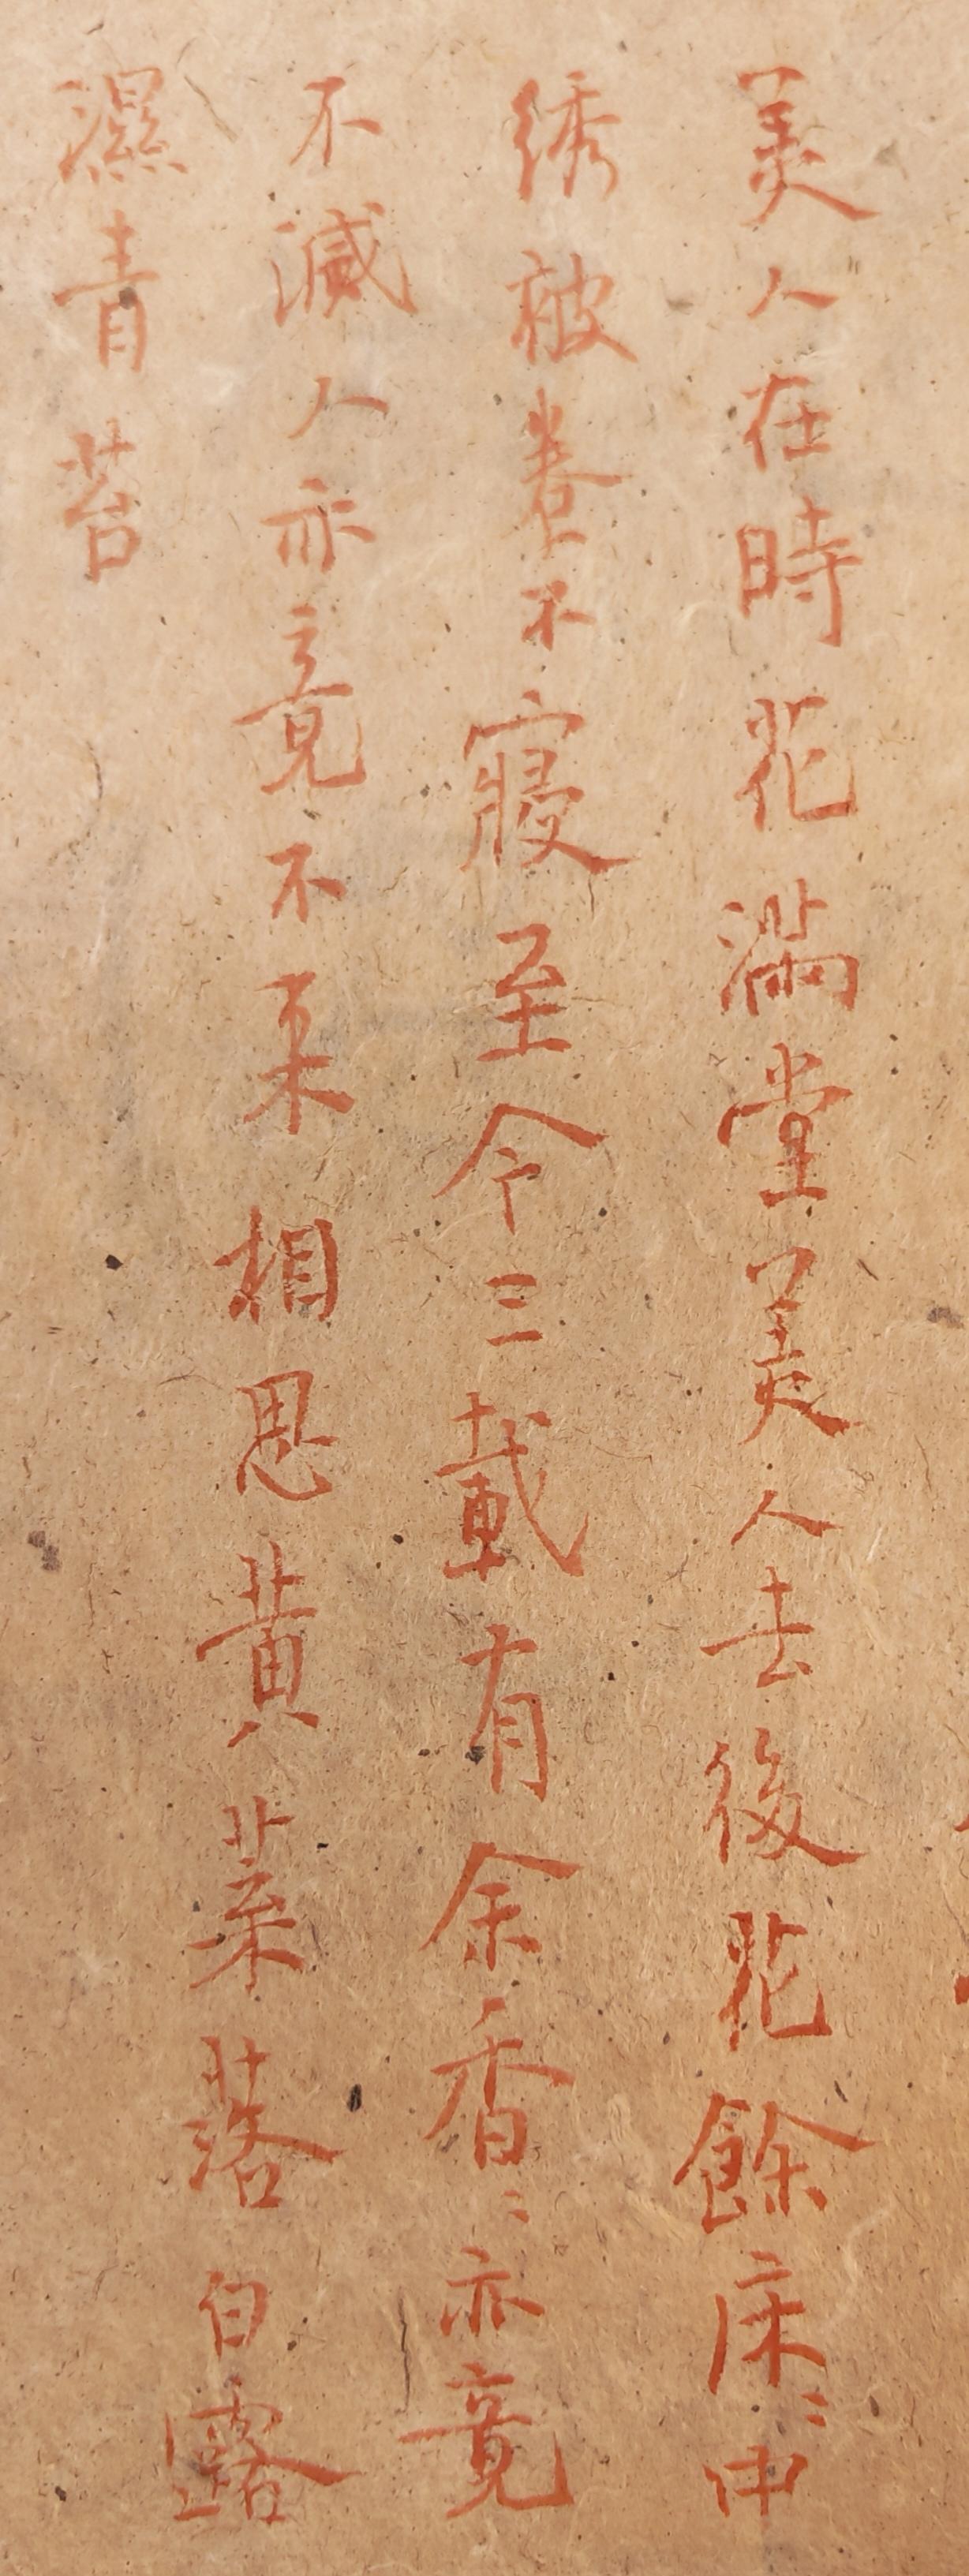 美人在時花滿堂美人去後花餘床〻中
綉被卷不寢至今三載有余香〻亦竟
不滅人亦竟不来相思黄葉落白露
濕青苔